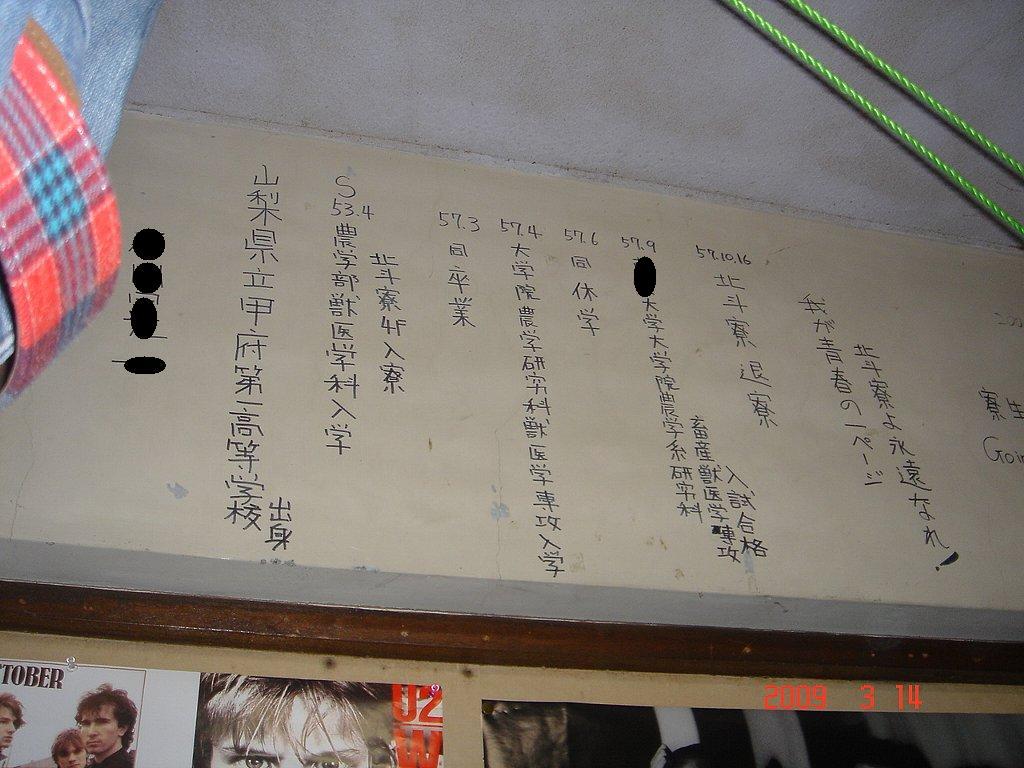 山梨県立甲府第一高等学校
出身
S
53.4
農学部獣医学科入学
北斗寮4F入寮
57.3
同卒業
57.4
大学院農学研究科獣医学専攻入学
57.6
同休学
57.9
大学大学院農学系研究科
畜産獣医学専攻
入試合格
57.10.16
北斗寮退寮
我が青春の一ページ
北斗寮よ永遠なれ!
寮生
Goin
TOBER
U2
W
2009 3 14